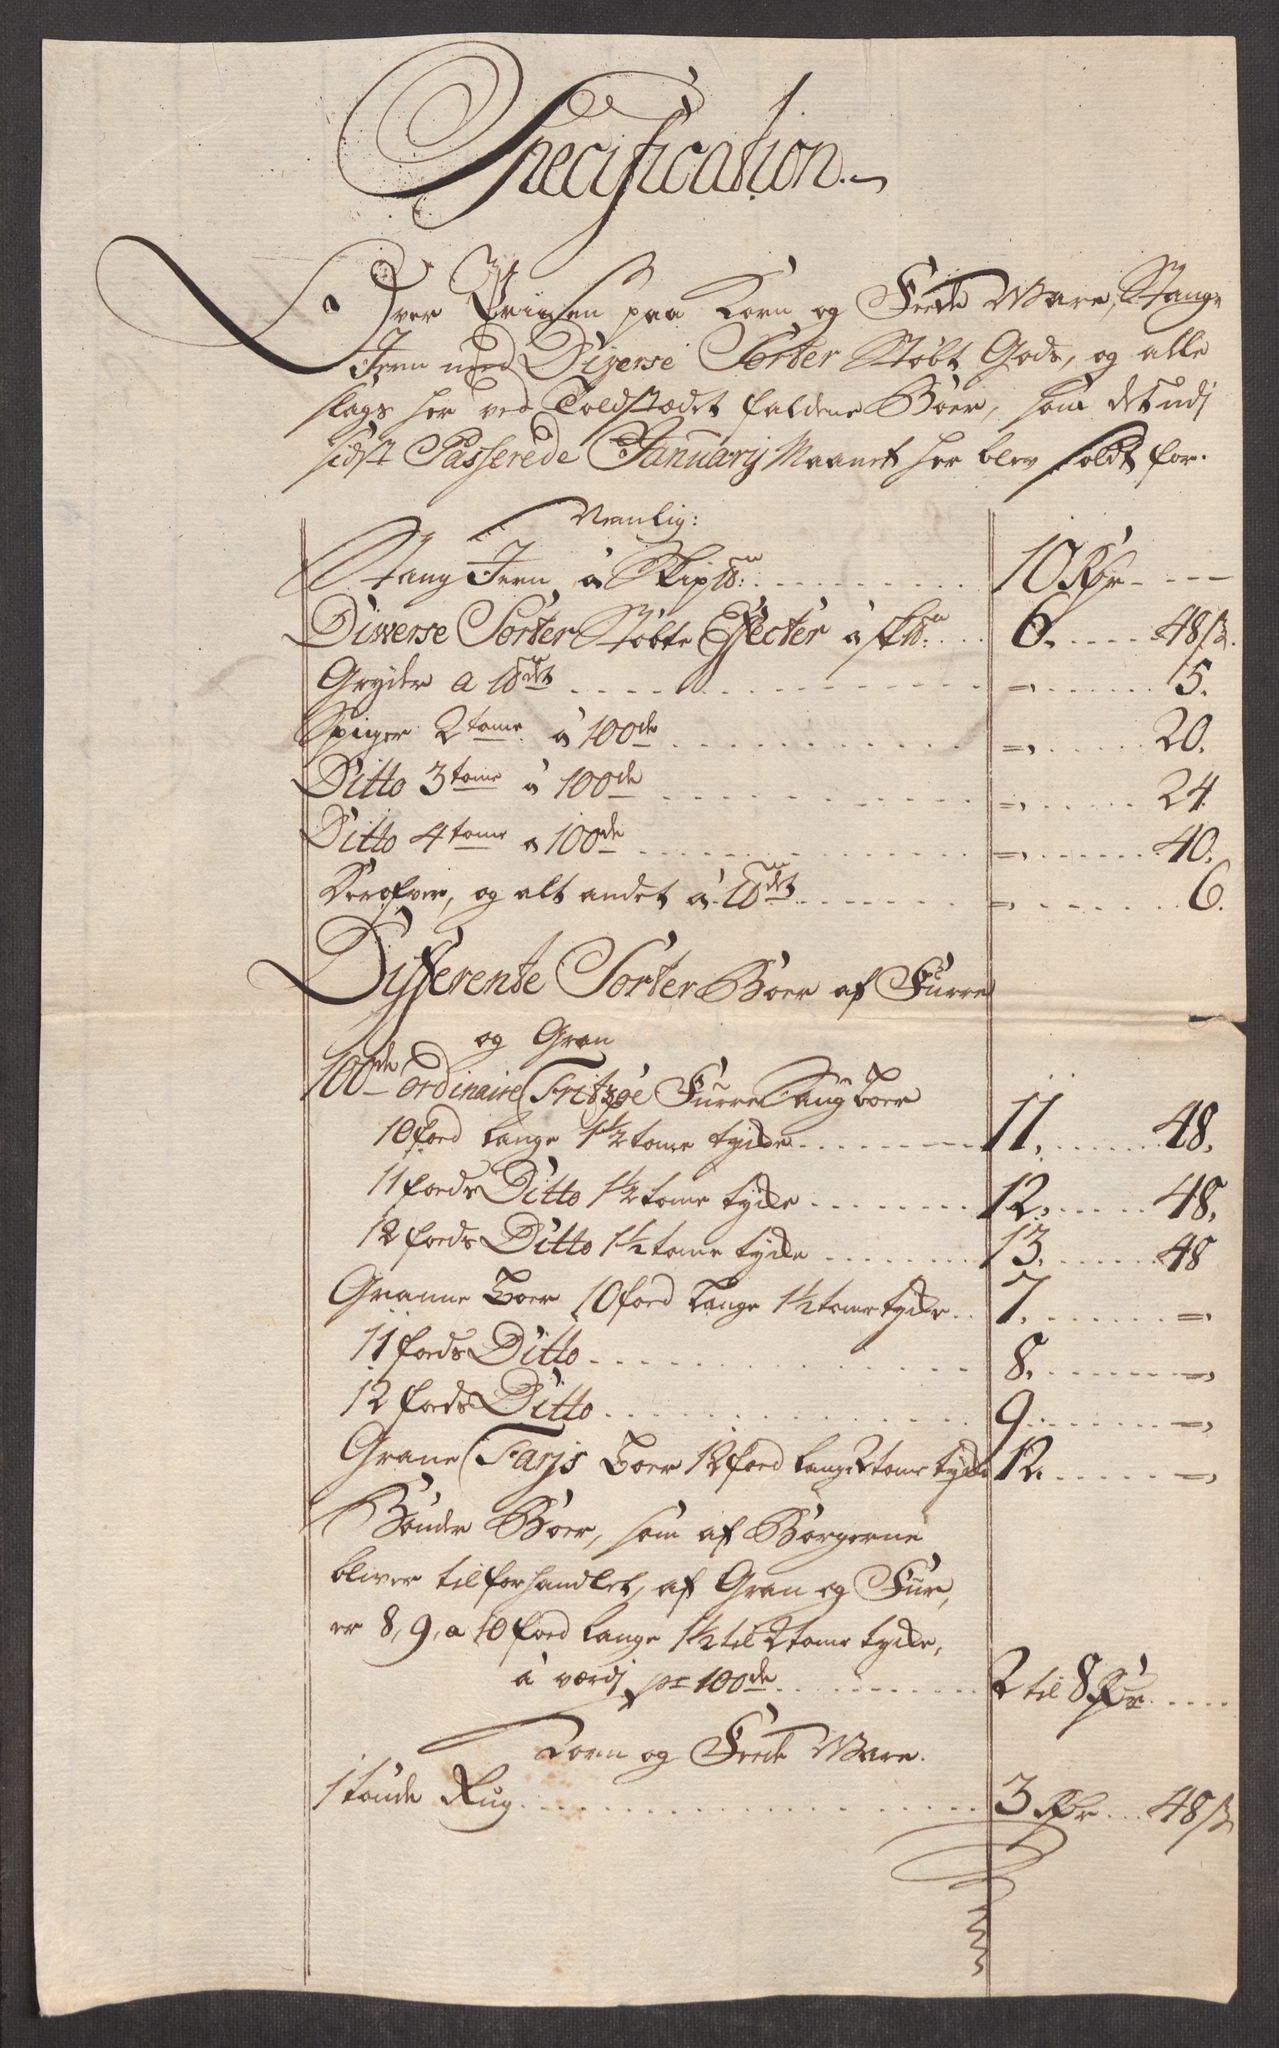 Specification.
Over Prisen paa Korn og Fede Ware, Stang
Jern med Diverse Sorter Støbt Gods, og alle
slags her ved Toldstædet faldene Boer, som det udj
sidst Passerede Januarij Maanet her blev soldt for.
Nemlig:
Stang Jern, à Skip ℔: 10 Rdr
Diverse Sorter Støbte Effecter à sk℔: 6. 48 s
Gryder a ℔det = 5.
Spiger 2 tome à 100de = 20.
Ditto 3 tome à 100de = 24
Ditto 4 tome a 100de = 40.
Derofver, og alt andet à ℔det = 6.
Differente Sorter Boer af Furre
og Gran
100de ordinaire Fritzöe Furre Saug boer
10 foed lange 1½ tome tycke 11. 48.
11 foeds Ditto 1½ tome tycke 12. 48.
12 foeds Ditto 1½ tome tycke 13. 48
Granne Boer 10 foed lange 1½ tome tycke 7. =
11 foeds Ditto 8. =
12 foeds Ditto 9. =
Grane Farjs Boer 12 foed lange 2 tome tycke 12. =
Bönder Boer, som af Borgerne
bliver tilforhandlet, af Gran og Fur,
er 8, 9, a 10 foed lange 1½ til 2 tome tycke,
à værdj pr 100de 2 til 8 Rdr
Korn og Fede Ware.
1 tönde Rug 3 Rdr 48 s